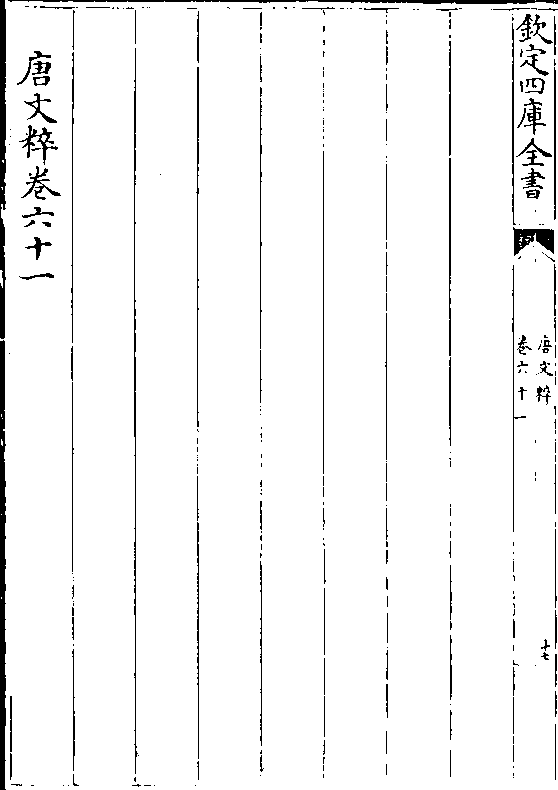 欽定四庫全書
唐文粹
卷六十一
十七
唐文粹卷六十一